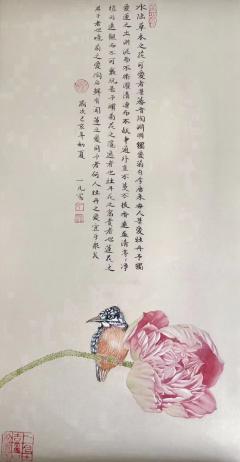 水陸草木之花可愛者甚蕃晉陶淵明獨愛菊自李唐來世人甚愛牡丹予獨
愛蓮之出淤泥而不染濯清漣而不妖中通外直不蔓不枝香遠益清亭亭淨
植可遠觀而不可褻玩焉予謂菊花之隱逸者也牡丹花之富貴者也蓮花之
君子者也噫菊之愛陶后鮮有聞蓮之愛同予者何人牡丹之愛宜乎眾矣
歲次己亥年初夏 一凡寫